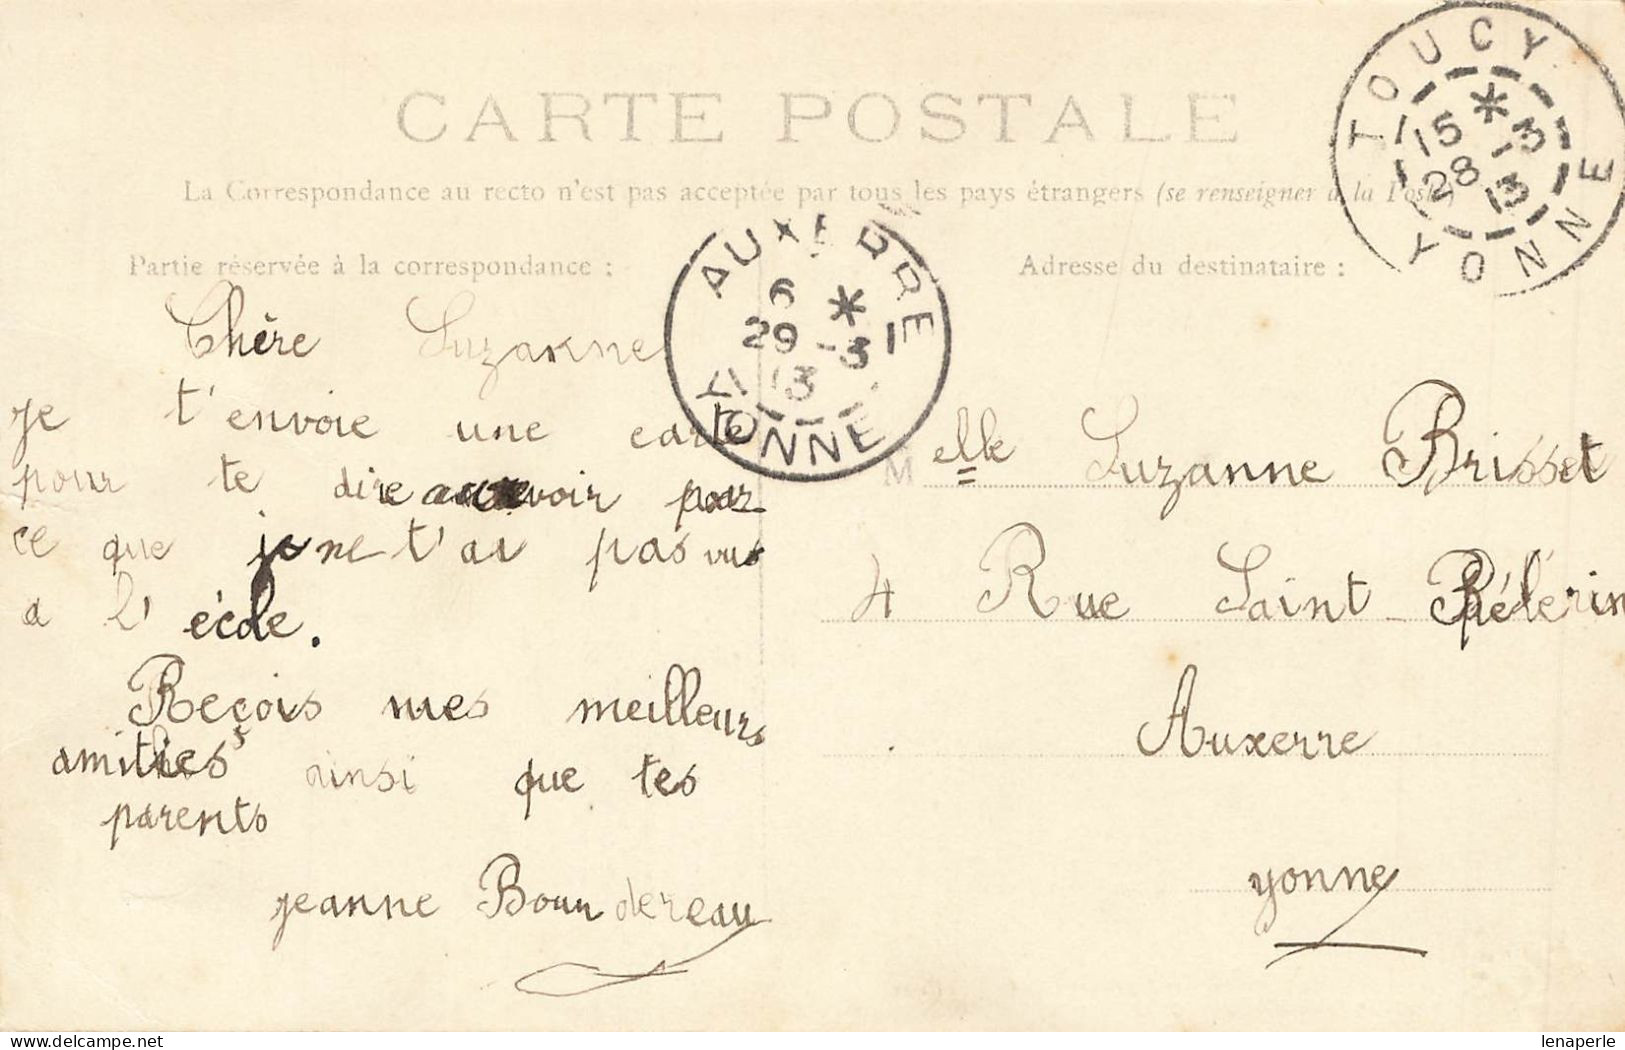 CARTE POSTALE
La Correspondance au recto n'est pas acceptée par tous les pays étrangers (se renseigner à la Poste)
Partie réservée à la correspondance :
Chère Suzanne
je t'envoie une carte
pour te dire aurevoir pour
ce que je ne t'ai pas vus
a l'école.
Reçois mes meilleurs
amitiés ainsi que tes
parents
jeanne Bourdereau
Adresse du destinataire :
Melle Suzanne Brisset
4 Rue Saint-Pélérin
Auxerre
yonne
TOUCY
15 * 28 -3 13
YONNE
AUXERRE
6 * 29 -3 13
YONNE
lenaperle